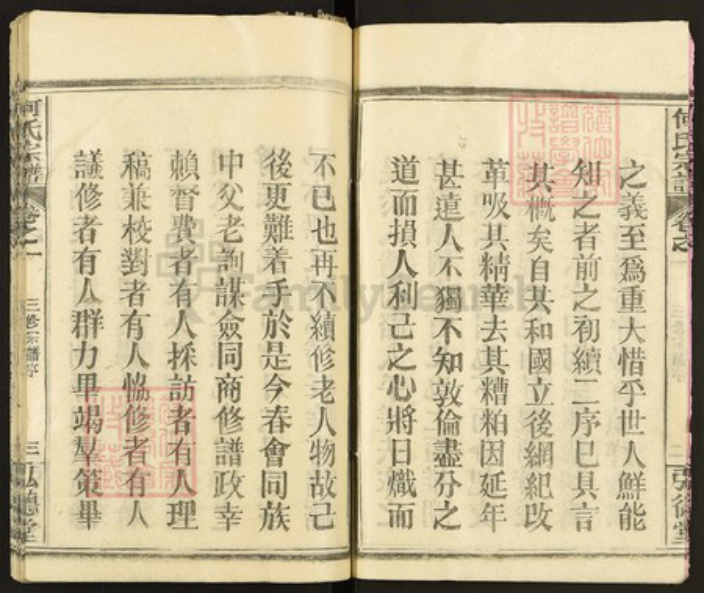 何氏宗譜
卷之一
之義至爲重大惜乎世人鮮能
知之者前之初續二序已具言
其概矣自共和國立後綱紀改
革吸其精華去其糟粕因延年
甚遠人不獨不知敦倫盡分之
道而損人利己之心將日熾而
二
弘德堂
不已也再不續修老人物故己
後更難着手於是今春會同族
中父老詢謀僉同商修譜政幸
賴督費者有人採訪者有人理
稿兼校對者有人恊修者有人
議修者有人群力畢竭羣策畢
何氏宗譜
卷之一
三修宗譜序
三
弘德堂
FamilySearch